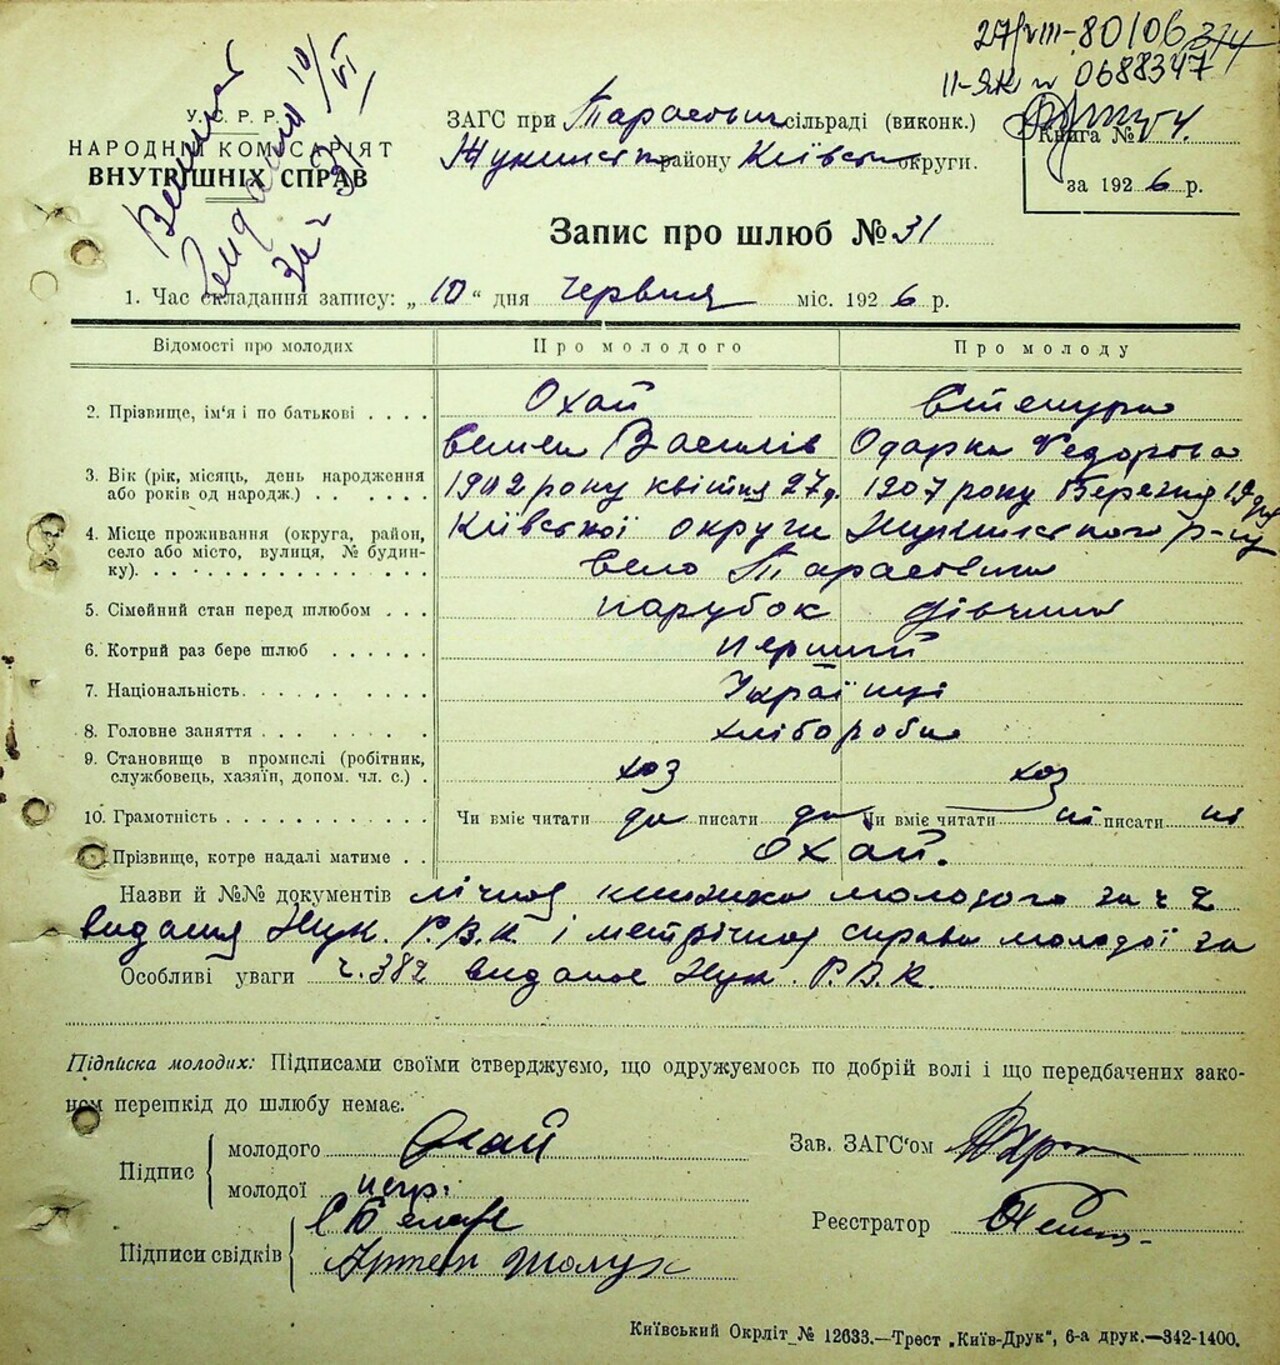 27/VIII-80/06 314
II-ЯК № 0688347
У. С. Р. Р.
НАРОДНІЙ КОМІСАРІЯТ
ВНУТРІШНІХ СПРАВ
10/VI
ЗАГС при Тарасовицк сільраді (виконк.)
Жукинськ району Київськ округи.
Книга №
за 1926 р.
Запис про шлюб № 31
1. Час складання запису: „10“ дня червня міс. 1926 р.
Відомості про молодих
Про молодого
Про молоду
2. Прізвище, ім'я і по батькові
Охай
Семен Василів
Одарка Федорова
3. Вік (рік, місяць, день народження
або років од народж.)
1902 року квітня 27 д.
1907 року Березня 19 дня
4. Місце проживання (округа, район,
село або місто, вулиця, № будин-
ку).
Київської округи Жукинського р-ну
село Тарасовичи
5. Сімейний стан перед шлюбом
парубок
дівчина
6. Котрий раз бере шлюб
перший
7. Національність.
Українці
8. Головне заняття
хліборобы
9. Становище в промислі (робітник,
службовець, хазяїн, допом. чл. с.)
хоз
хоз
10. Грамотність
Чи вміє читати да писати да
Чи вміє читати ні писати ні
Прізвище, котре надалі матиме
Охай.
Назви й №№ документів лічна книжка молодого за ч 2
видания Жук. Р.В.К. і метрична справка молодої за
Особливі уваги ч. 382 видане Жук. Р.В.К.
Підписка молодих: Підписами своїми стверджуємо, що одружуємось по добрій волі і що передбачених зако-
ном перешкід до шлюбу немає.
Підпис
молодого Охай
молодої негр.
Зав. ЗАГС'ом
Реєстратор
Підписи свідків
Артем
Київський Окрліт № 12633.—Трест „Київ-Друк“, 6-а друк.—342-1400.